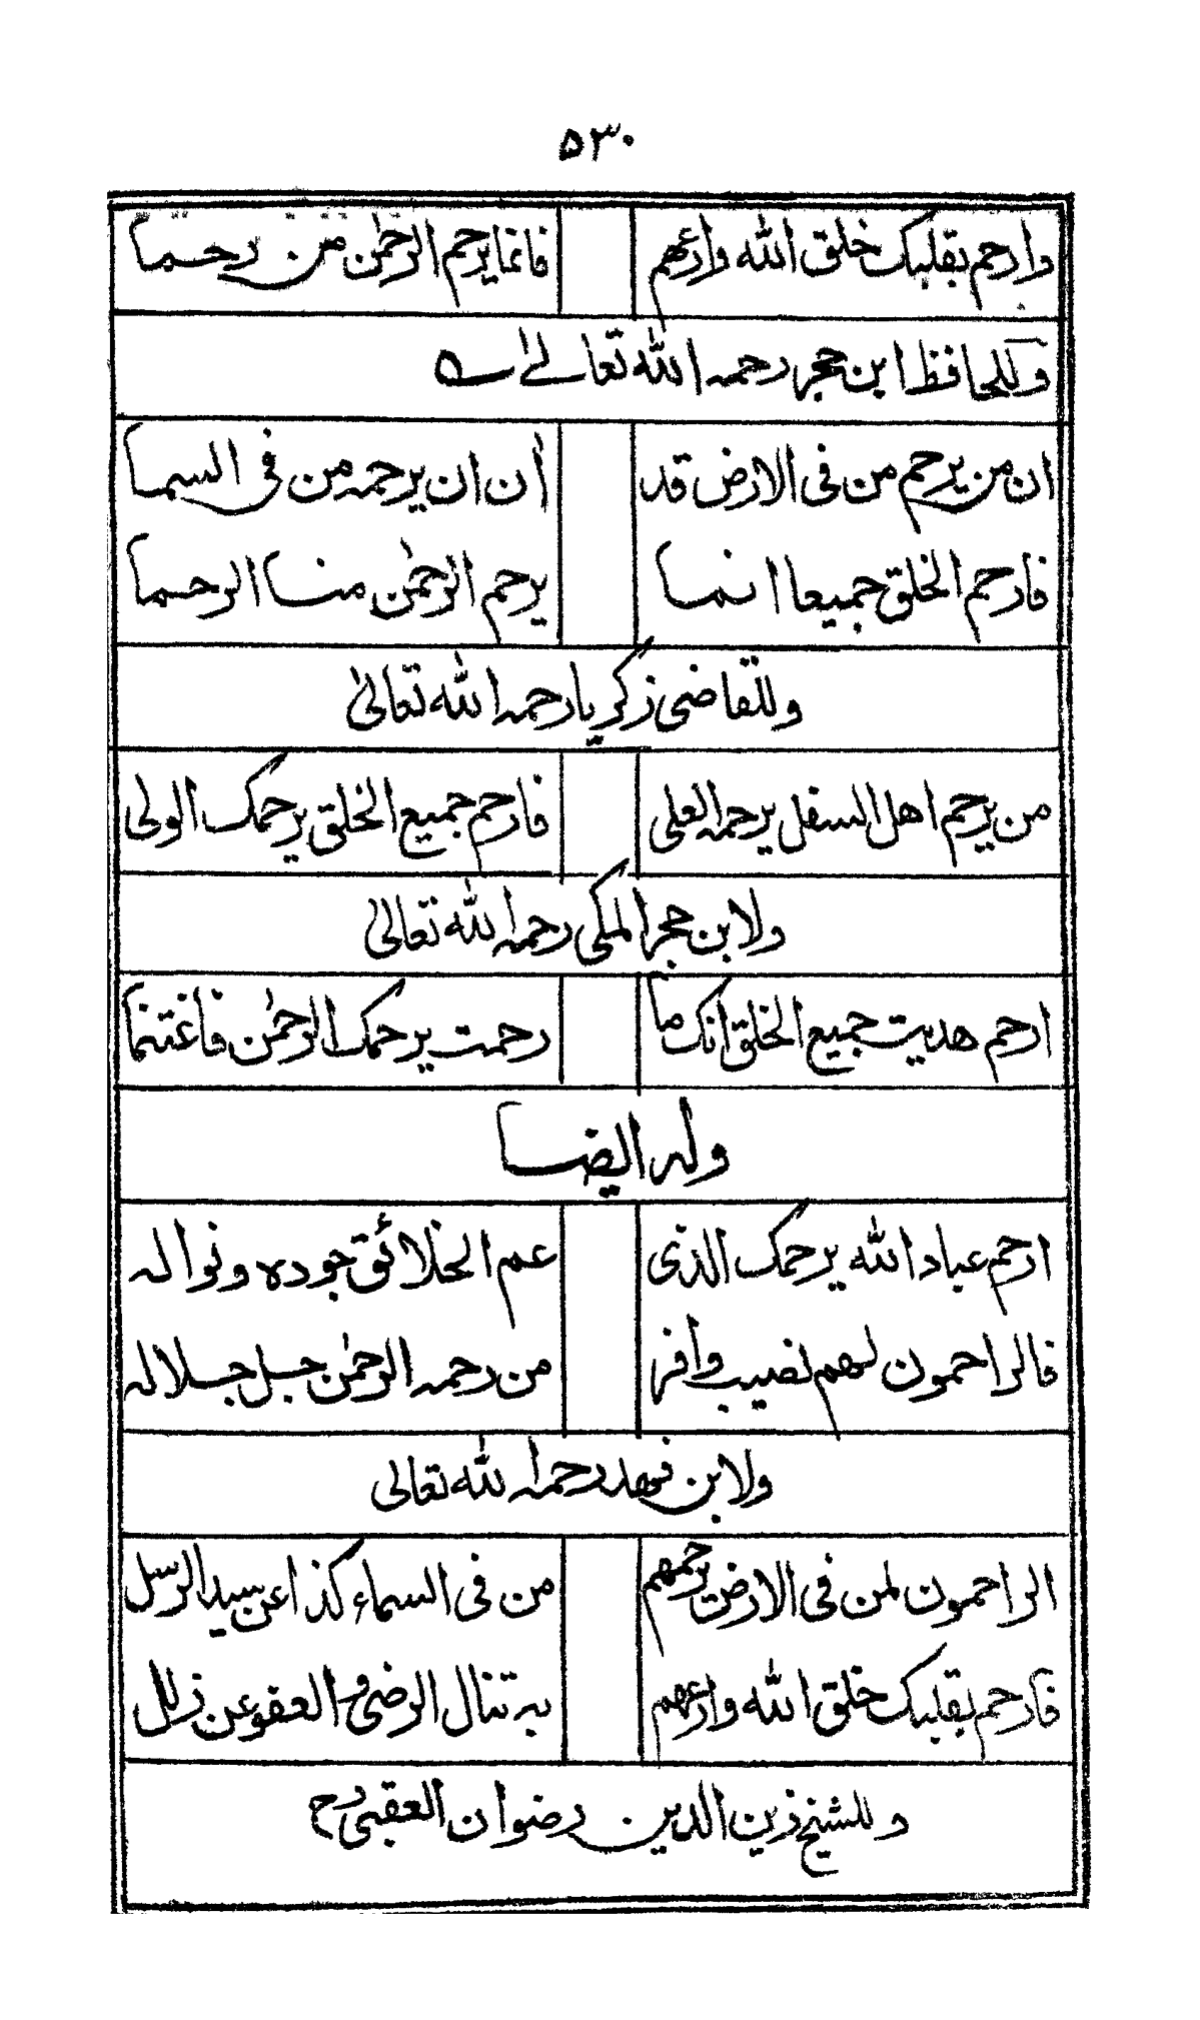 ۵۳۰
وارحم بقلبك خلق الله وارعهم فانما يرحم الرحمٰن من رحما
وللحافظ ابن حجر رحمه الله تعالے ۵
ان من يرحم من فى الارض قد أن ان يرحمه من فى السما
فارحم الخلق جميعا انما يرحم الرحمٰن منا الرحما
وللقاضى زكريا رحمه الله تعالىٰ
من يرحم اهل السفل يرحمه العلى فارحم جميع الخلق يرحمك الولى
ولابن حجر المكى رحمه الله تعالىٰ
ارحم هديت جميع الخلق انك ما رحمت يرحمك الرحمٰن فاغتنما
وله ايضا
ارحم عباد الله يرحمك الذى عم الخلائق جوده ونواله
فالراحمون لهم نصيب وافر من رحمه الرحمٰن جل جلاله
ولابن فهد رحمه الله تعالى
الراحمون لمن فى الارض يرحمهم من فى السماء كذا عن سيد الرسل
فارحم بقلبك خلق الله وارعهم به تنال الرضى والعفو عن زلل
وللشيخ زين الدين رضوان العقبى رح